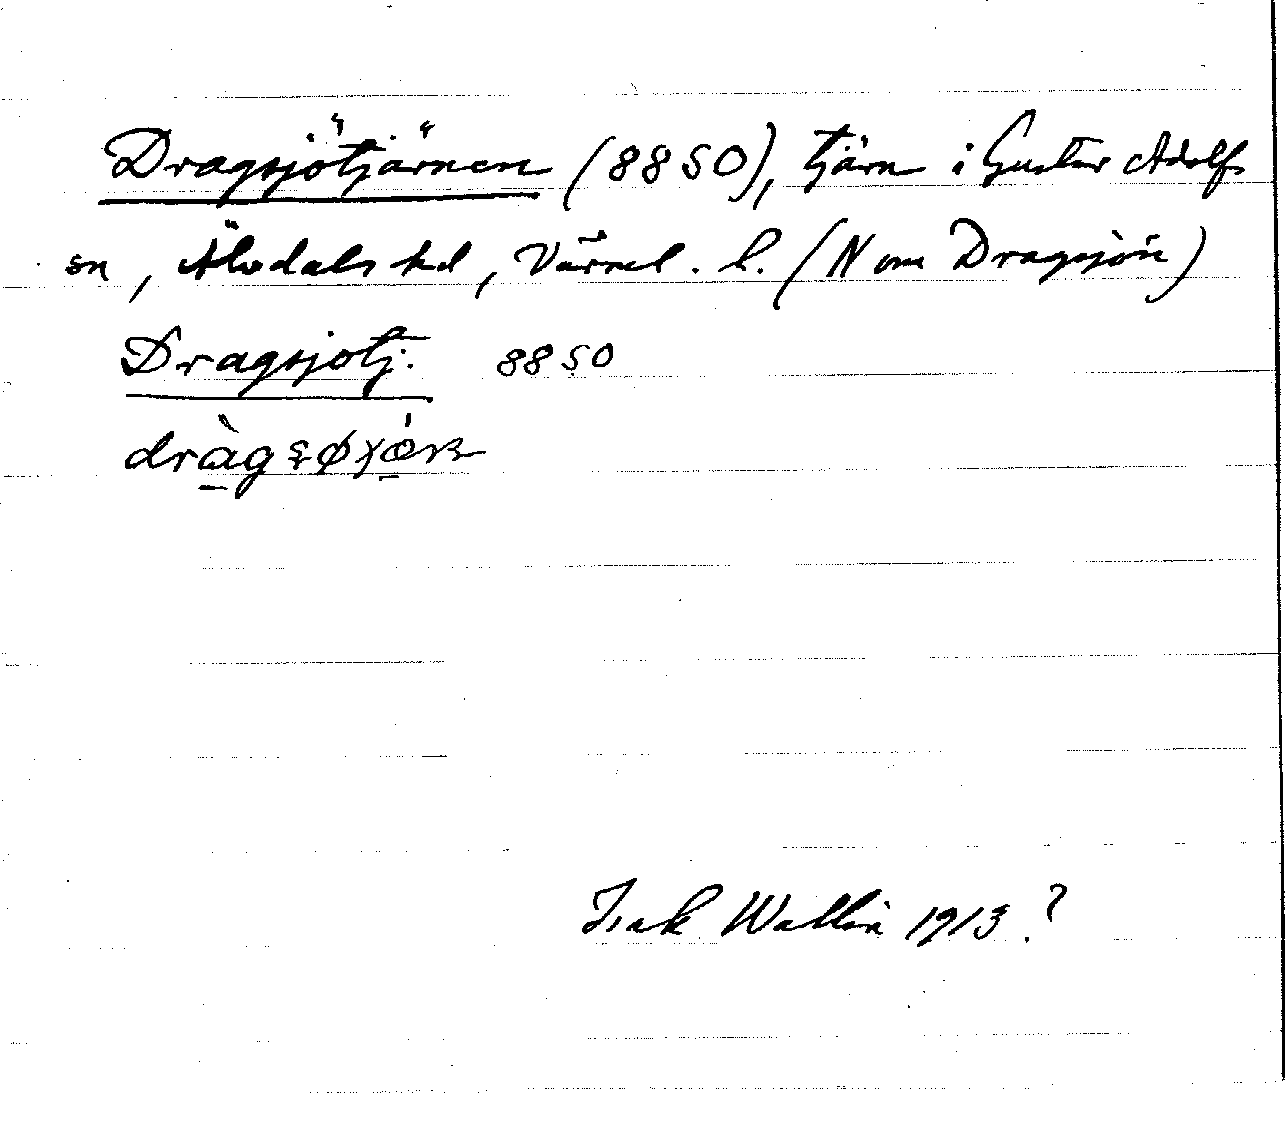 Dragsjötjärnen (8850), tjärn i Gustav Adolfs
sn, Älvdals hd, Värml. l. (N om Dragsjön)
Dragsjötj. 8850
Isak Wallin 1913 ?